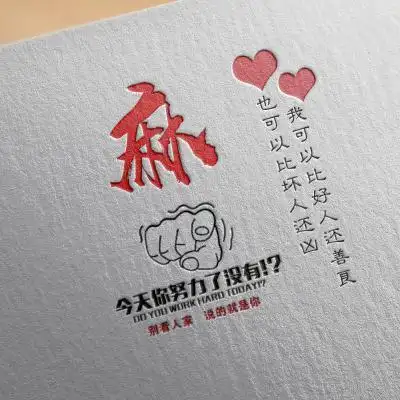 麻
我可以比好人还善良
也可以比坏人还凶
今天你努力了没有!?
DO YOU WORK HARD TODAY!?
别看人家 说的就是你